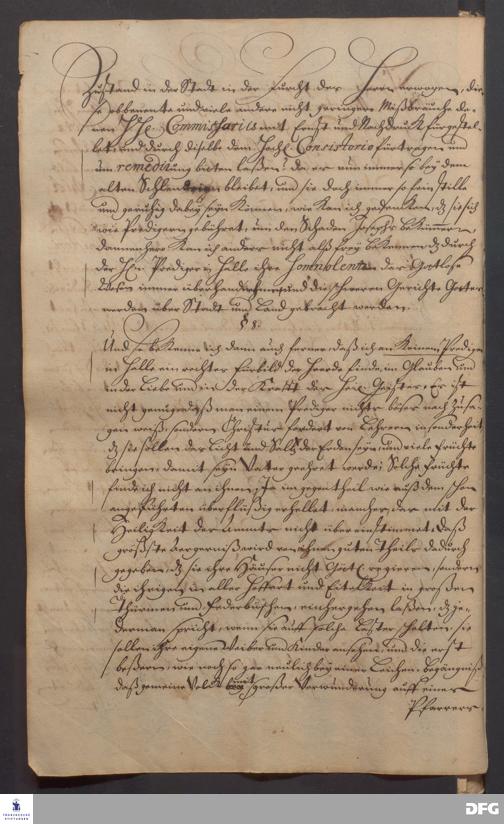 Zustand in der Stadt in der Furcht des Herrn erwogen, die-
se obbenente und viele andere nicht geringere Mißbräuche de-
nen HHn. Commissariis mit Ernst und Nachdruck fürgestel-
let, und durch dieselbe dem Hochl. Consistorio fürtragen und
um remedirung bitten laßen? da es nun immer so bey dem
alten bleibet, und sie doch immer so fein stille
und geruhig dabey seyn können, wie kan ich gedencken, dz sie sich
wie Predigern gebühret, um den Schaden Josephs bekümmern
dannenhero kan ich anders nicht alß frey bekennen, dz durch
der Hn. Prediger in Halle ihre Somnolentz das Gottlose
Wesen immer überhand und die schweren Gerichte Gottes
werden über Stadt und Land gebracht werden.
§ 8.
Und so bekenne ich dann auch ferner, daß ich an keinem Prediger
in Halle ein rechtes Fürbild der Heerde finde, im Glauben und
in der Liebe und in der Krafft des Heil. Geistes, Es ist
nicht genug, daß man einem Prediger nichts böses nach zusa-
gen weiß, sondern Christus fordert von Lehrern insonderheit
dz sie sollen das Licht und Saltz der Erden seyn und viele Früchte
bringen, damit sein Vater geehret werde: Solche Früchte
finde ich nicht an ihnen, Ja im gegentheil wie auß dem schon
angeführten überflüßig erhellet, manches, das mit der
Heiligkeit des Amts nicht übereinstimmet, Das
gröste Aergerniß wird von ihnen guten Theils dadurch
gegeben, dz sie ihre Häuser nicht Göttl. regieren, sondern
die ihrigen in aller Hoffart und Eitelkeit in großen
Thürmen und Federbüschen einhergehen laßen, dz je-
derman spricht, wenn sie auff solche Laster schelten, sie
sollen ihre eigene Weiber und Kinder ansehen, und die erst
beßern, wie noch so gar neulich bey einer Leichen-Begängniß
das gemeine Volck mit großer Verwunderung auff eines
Pfarrers
FRANCKESCHE
STIFTUNGEN
DFG